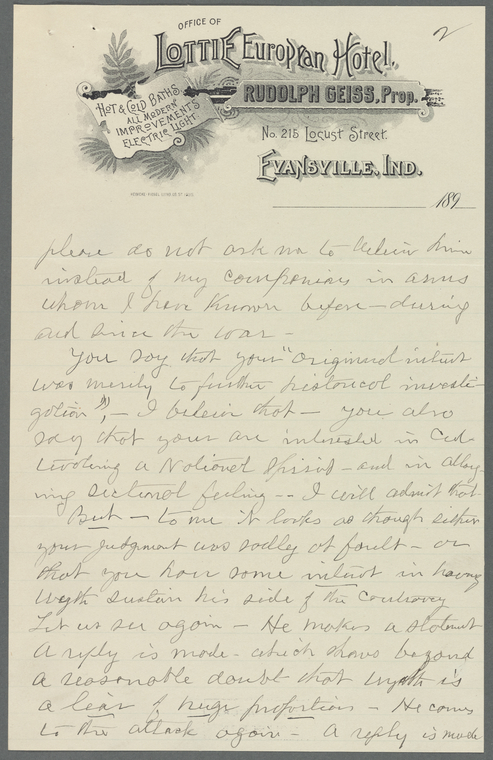 2
OFFICE OF
LOTTIE European Hotel,
RUDOLPH GEISS, Prop.
HOT & COLD BATHS
ALL MODERN
IMPROVEMENTS
ELECTRIC LIGHT.
No. 215 Locust Street.
EVANSVILLE, IND.
189
please do not ask me to believe him
instead of my companions in arms
whom I have known before – during
and since the war –
You say that your "original intent
was merely to further historical investi-
gation", – I believe that – you also
say that your are interested in Cul-
tivating a National Spirit – and in allay-
ing sectional feeling – – I will admit that
But – to me it looks as though either
your judgment was sadly at fault – or
that you have some intent in having
Wyeth sustain his side of the Controversy
Let us see again – He makes a statement
A reply is made – which shows beyond
a reasonable doubt that Wyeth is
a liar of huge proportions – He comes
to the attack again – A reply is made